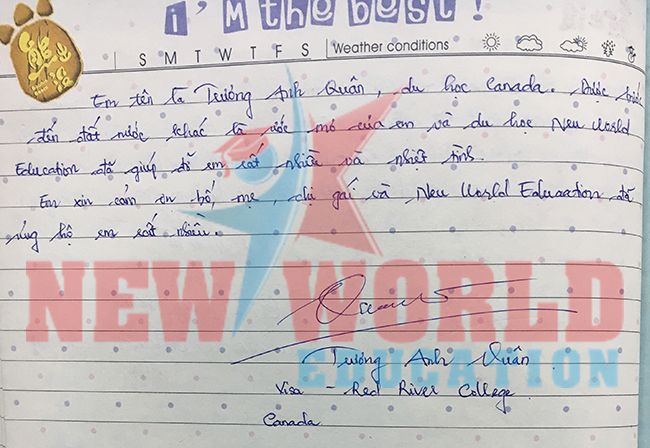 i'M the best!
S M T W T F S Weather conditions
Em tên là Trương Anh Quân, du học Canada. Được bước
đến đất nước khác là ước mơ của em và du học New World
Education đã giúp đỡ em rất nhiều và nhiệt tình.
Em xin cảm ơn bố, mẹ, chị gái và New World Education đã
ủng hộ em rất nhiều.
NEW WORLD
EDUCATION
Trương Anh Quân
Visa - Red River College
Canada